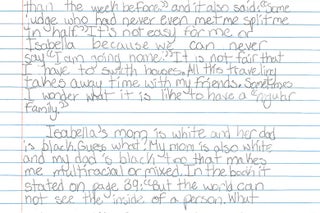 than the week before." and it also said, "Some
judge who had never even met me split me
in half." It's not easy for me, or
Isabella because we can never
say "I am going home." It is not fair that
I have to switch houses. All this traveling
takes away time with my friends. Sometimes
I wonder what it is like to have a "regular
family."
Isabella's mom is white and her dad
is black. Guess what? My mom is also white
and my dad is black too that makes
me multiracial or mixed. In the book it
stated on page 39: "But the world can
not see the inside of a person. What